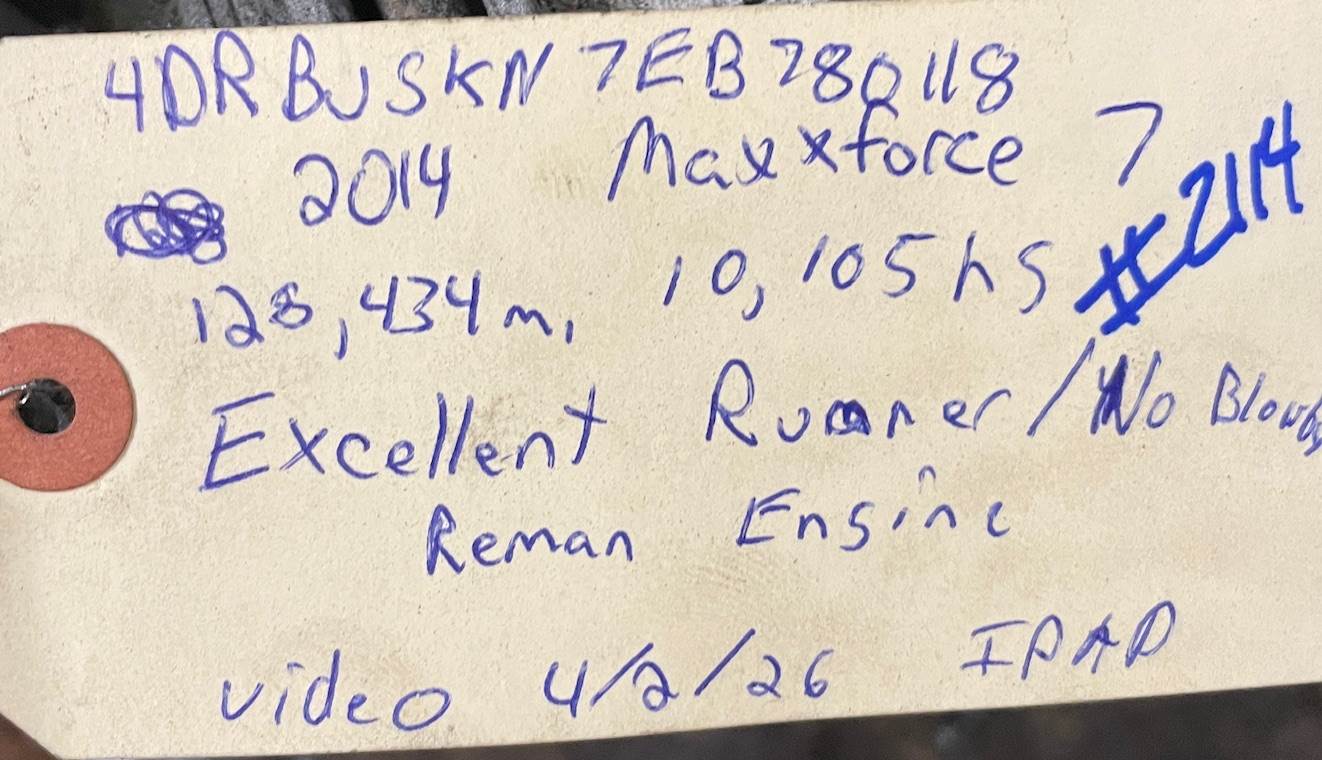 4DRBUSKN7EB780118
2014 Maxxforce 7
#2114
128,434 mi 10,105 hs
Excellent Runner / No Blowby
Reman Engine
video 4/2/26 IPAD